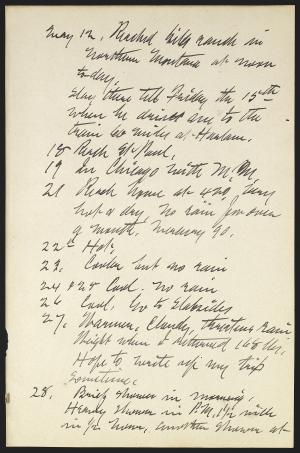 May 12. Reached Hilger ranch in
Northern Montana at noon
to-day.
Stay there till Friday the 15th
when he drives me to the
train 60 miles at Harlem.
18 Reach St Paul,
19 In Chicago with M. M.
21 Reach home at 4.20, very
hot & dry, no rain for over
a month. Mercury 90.
22d Hot,
23. Cooler but no rain
24 & 25 Cool. No rain
26 Cool. Go to Slabsides
27. Warmer, Cloudy, threatens rain
Weight when I returned 168 lbs,
Hope to write up my trip
sometime.
28. Brisk shower in morning.
Heavy shower in P.M. 1/2 inch
in 1/2 hour, another shower at